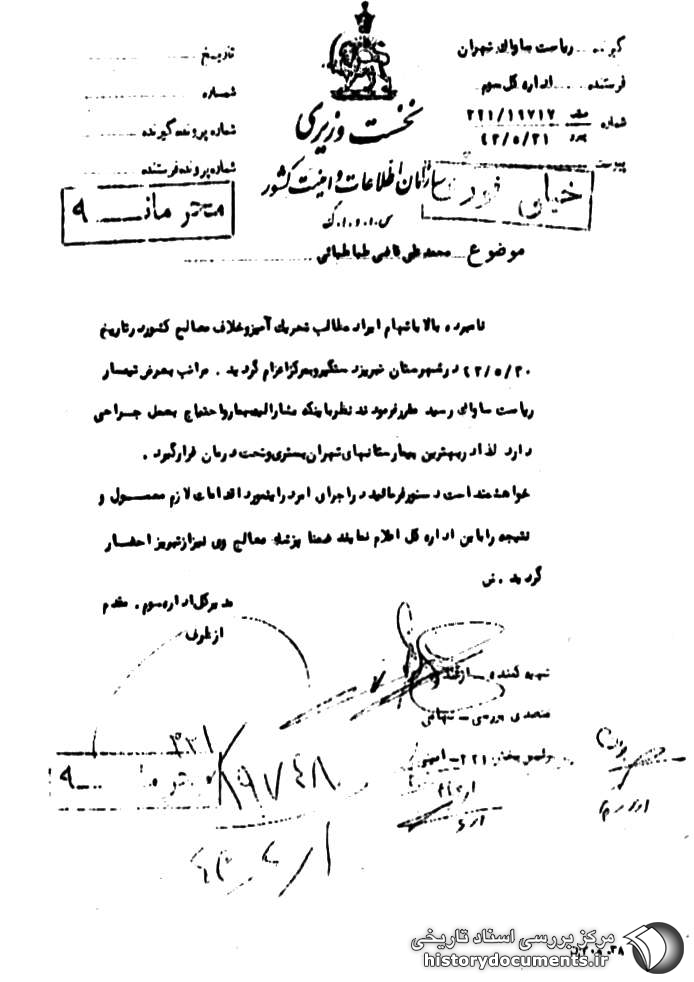 گیرنده ریاست ساواک تهران
فرستنده اداره کل سوم
شماره ۲۲۱/۱۹۷۱۷
۴۲/۵/۲۱
پیوست
تاریخ
شماره
شماره پرونده گیرنده
شماره پرونده فرستنده
نخست وزیری
سازمان اطلاعات و امنیت کشور
س.ا.و.ا.ک
خیلی فوری
محرمانه
موضوع محمد علی قاضی طباطبائی
نامبرده بالا باتهام ایراد مطالب تحریک آمیز و خلاف مصالح کشور در تاریخ
۴۲/۵/۲۰ در شهرستان تبریز دستگیر و بمرکز اعزام گردید . مراتب بعرض تیمسار
ریاست ساواک رسید مقرر فرمودند نظر باینکه مشارالیه بیمار و احتیاج بعمل جراحی
دارد لذا در بهترین بیمارستانهای تهران بستری و تحت درمان قرار گیرد .
خواهشمند است دستور فرمائید در اجرای امر در اینمورد اقدامات لازم معمول و
نتیجه را باین اداره کل اعلام نمایند ضمنا پزشک معالج وی نیز از تبریز احضار
گردید . ش
مدیر کل اداره سوم . مقدم
از طرف
تهیه کننده
متصدی بررسی
رئیس بخش ۲۲۱
۳۲۱/
محرمانه
۱۹۷۴۸
مرکز بررسی اسناد تاریخی
historydocuments.ir